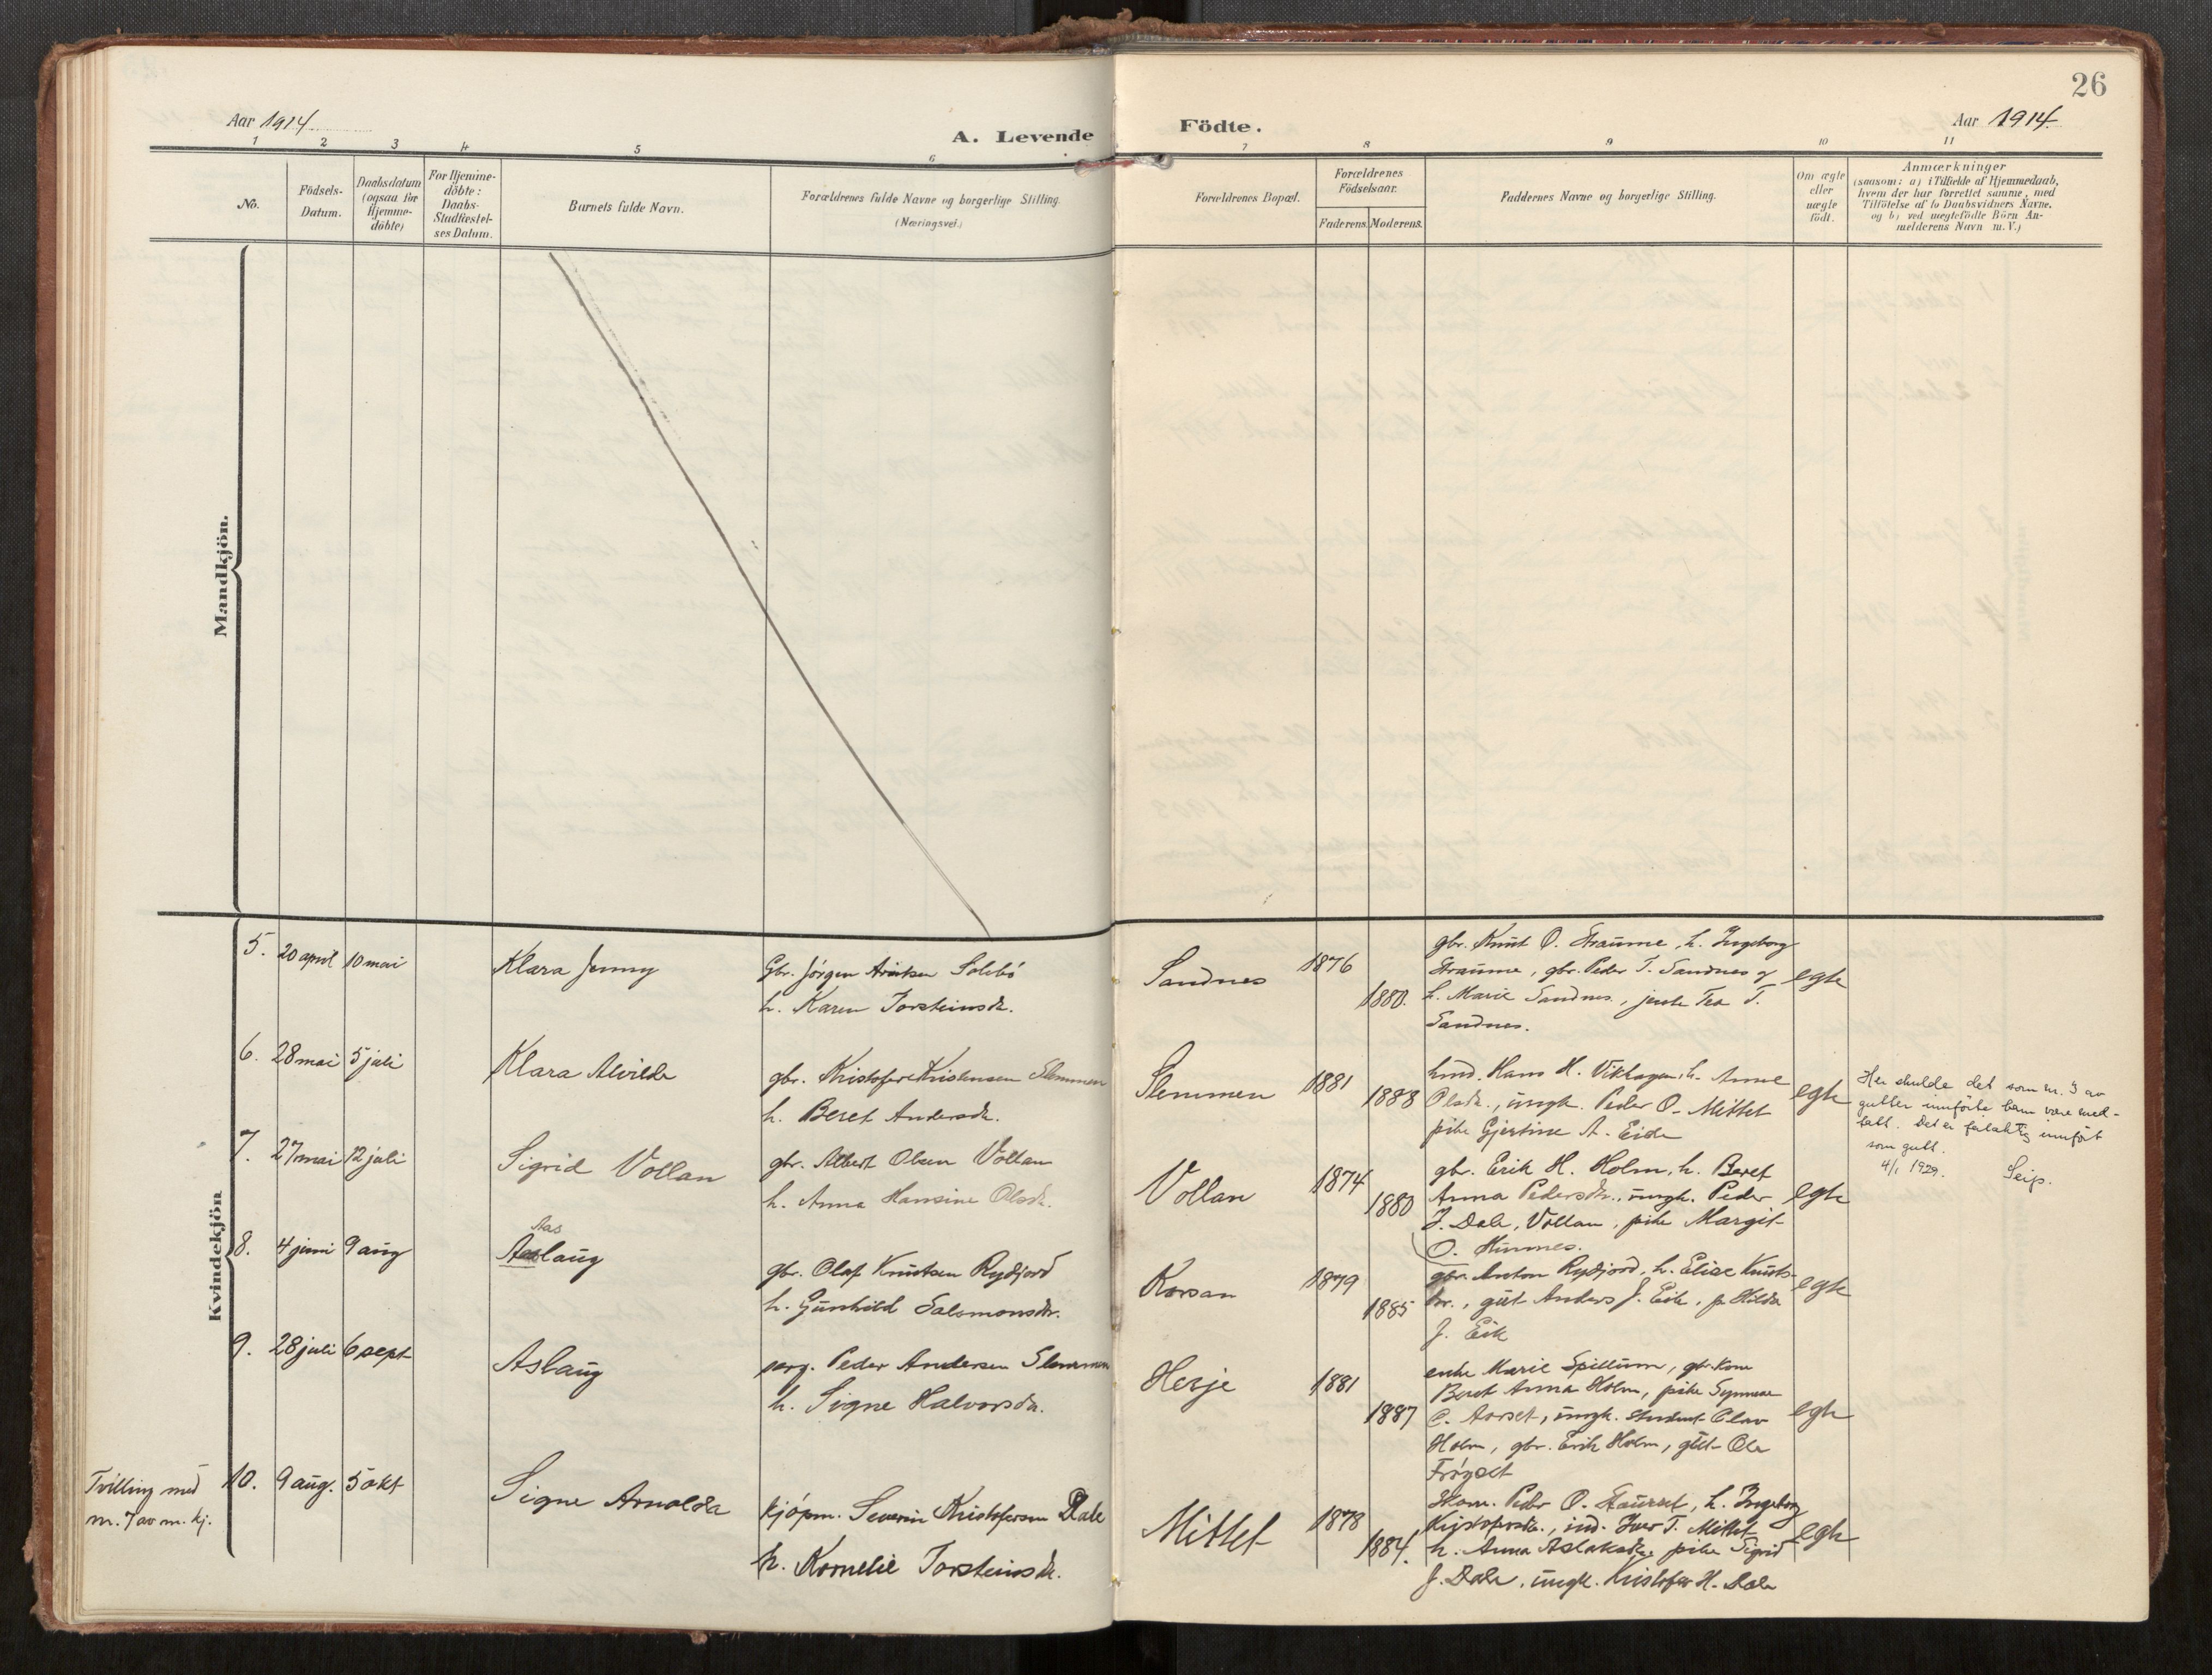 26
Aar 1914
A. Levende Födte.
Aar 1914.
1 2 3 4 5 6 7 8 9 10 11
No.
Födsels-
Datum.
Daabsdatum
(ogsaa for
Hjemme-
döbte)
For Hjemme-
döbte:
Daabs-
Stadfæstel-
ses Datum.
Barnets fulde Navn.
Forældrenes fulde Navne og borgerlige Stilling.
(Næringsvei.)
Forældrenes Bopæl.
Forældrenes
Födselsaar.
Faderens. Moderens.
Faddernes Navne og borgerlige Stilling.
Om ægte
eller
uægte
födt.
Anmærkninger
(saasom: a) i Tilfælde af Hjemmedaab,
hvem der har forrettet samme, med
Tilföielse af to Daabsvidners Navne.
og b) ved uægtefödte Börn An-
melderens Navn m.V.)
Mandkjön.
Kvindekjön
5. 20 april 10 mai
Klara Jenny
Gbr. Jörgen Solebö
h. Karen Torsteinsdr.
Sandnes
1876
1880.
gbr. Knut O. Straume, h. Ingeborg
Straume, gbr. Peder T. Sandnes og
h. Marie Sandnes, jente Tea T.
Sandnes.
egte
6. 28 mai 5 juli
Klara Alvilde
gbr. Kristofer Kristensen Slemmen
h. Beret Andersdr.
Slemmen
1881
1888
Hans H. Vikhagen, h. Anne
Olsdr., ungk. Peder O. Mittet
pike Gjertine A. Eide
egte
Her skulde det som nr. 3 av
gutter innförte barn være med-
tatt. Det er feilaktig innfört
som gutt.
4/1 1929. Seip.
7. 27 mai 12 juli
Sigrid Vollan
gbr. Albert Olsen Vollan
h. Anna Hansine Olsdr.
Vollan
1874
1880
gbr. Erik H. Holm, h. Beret
Anna Pedersdr., ungk. Peder
J. Dale, Vollan, pike Margit
O. Hunnes.
egte
8. 4 juni 9 aug
Aas
Aaslaug
gbr. Olaf Knutsen Rydjord
h. Gunhild Salomonsdr.
Korsan
1879
1885
gbr. Anton Rydjord, h. Elise Knuts-
dr., gut Anders J. Eik, p. Hilda
J. Eik
egte
9. 28 juli 6 sept
Aslaug
Peder Andersen Slemmen
h. Signe Halvorsdr.
Herje
1881
1887
enke Marie Spillum, gbr. kone
Beret Anna Holm, pike Synneve
C. Aarset, ungk. student Olav
Holm, gbr. Erik Holm, gut Ole
Fröyset
egte
Tvilling med
nr. 7 av m. kj.
10. 9 aug. 5 okt
Signe Arnolda
kjöpm. Severin Kristofersen Dale
h. Kornelie Torsteinsdr.
Mittet
1878
1884.
Skom. Peder O. Staurset, h. Ingeborg
Kristofersdr., ind. Iver T. Mittet
h. Anna Aslaksdr. pike Sigrid
J. Dale, ungk. Kristofer H. Dale
egte